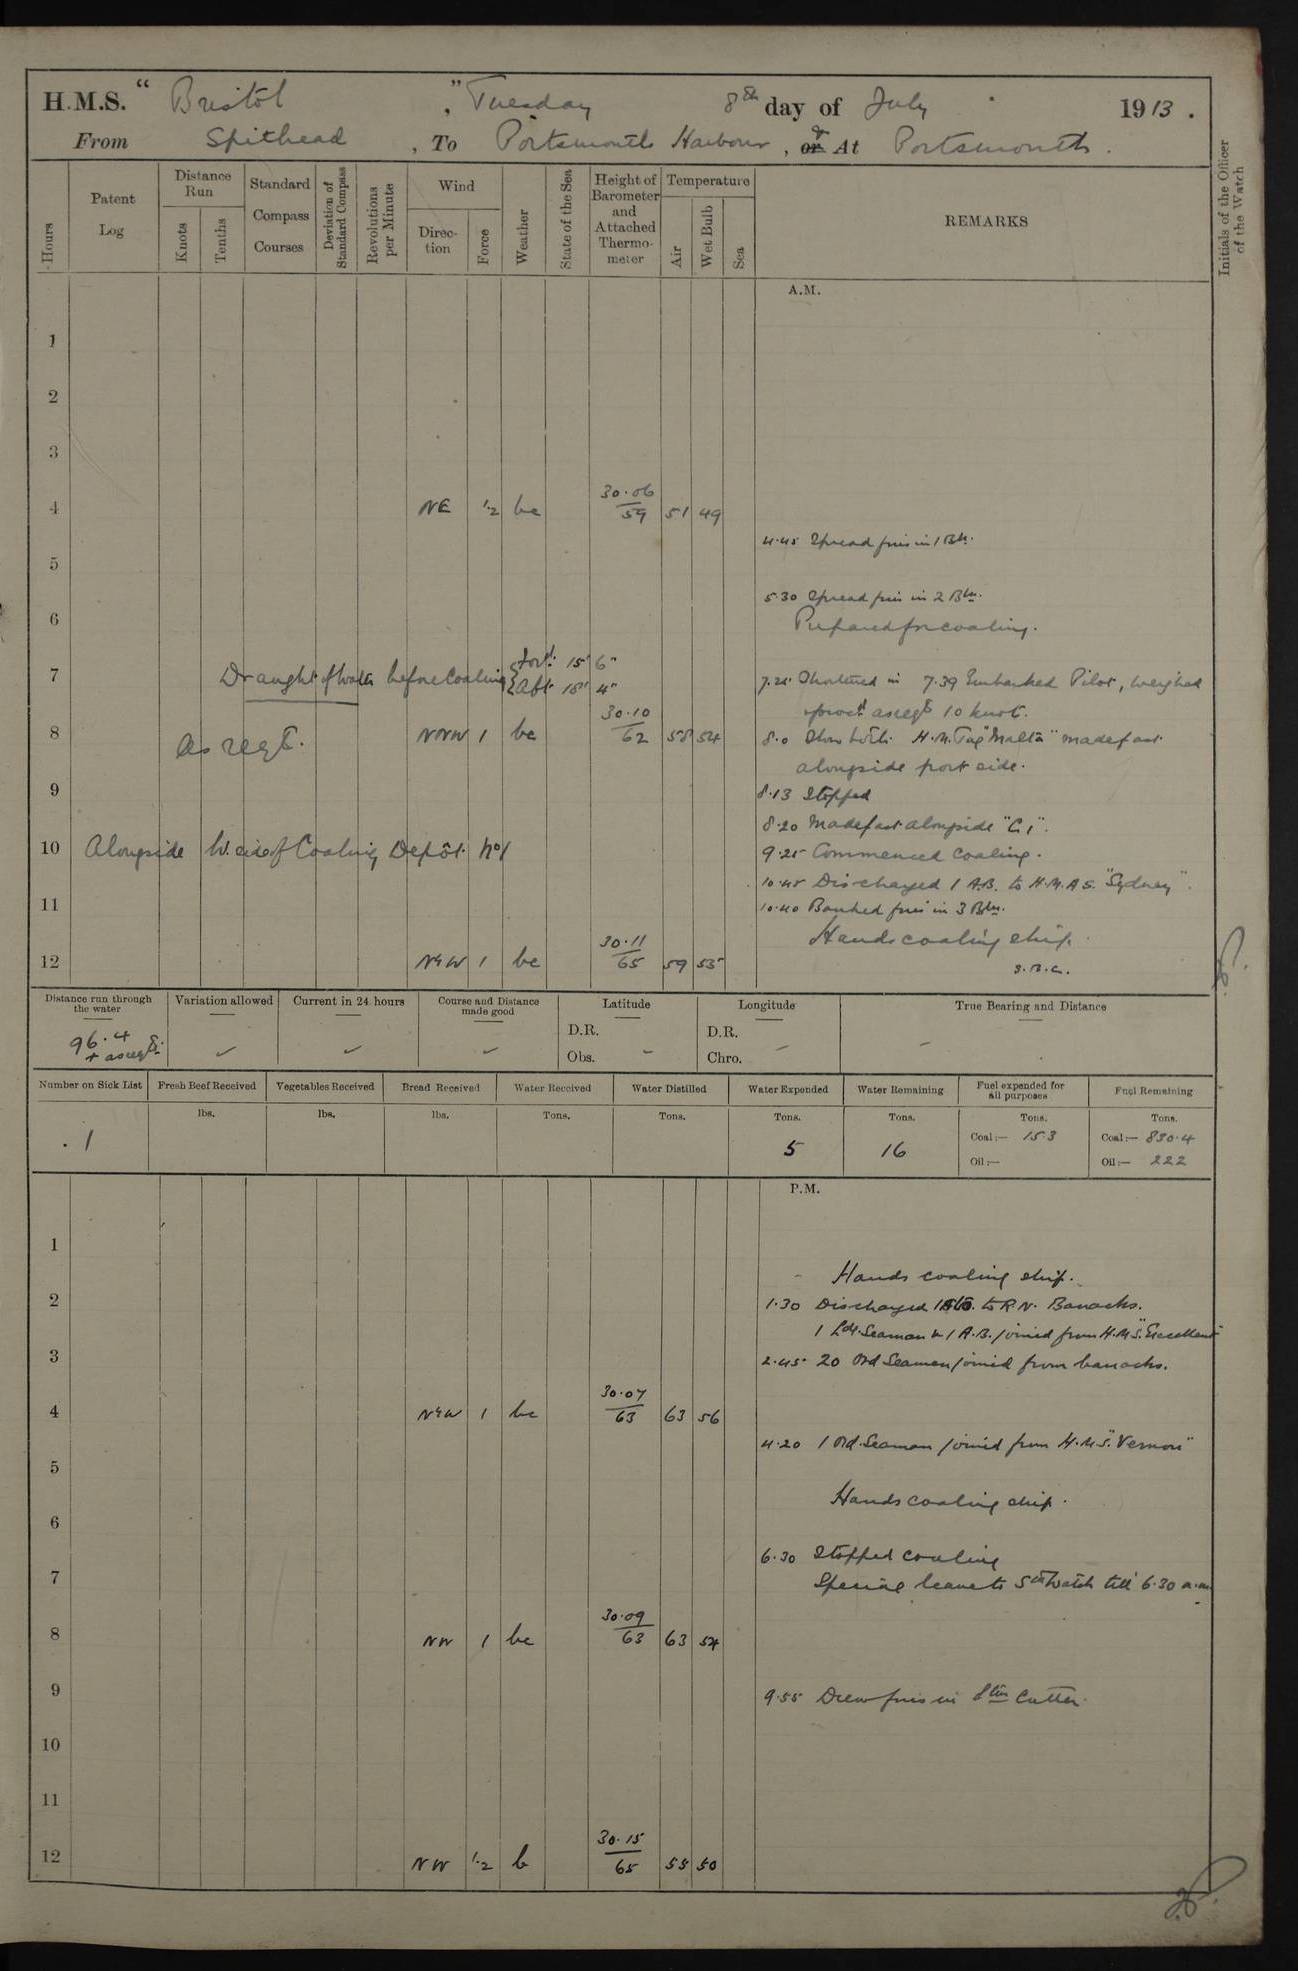 H.M.S. “ Bristol ,” Tuesday 8th day of July 1913 .
From Spithead , To Portsmouth Harbour , or & At Portsmouth .
Hours
Patent Log
Distance Run
Knots
Tenths
Standard Compass Courses
Deviation of Standard Compass
Revolutions per Minute
Wind
Direction
Force
Weather
State of the Sea
Height of Barometer and Attached Thermometer
Temperature
Air
Wet Bulb
Sea
REMARKS
Initials of the Officer of the Watch
A.M.
1
2
3
4 NE 1.2 bc 30.06/59 51 49
4.45 Spread fires in 1 Blr.
5
5.30 Spread fires in 2 Blrs.
6
Prepared for coaling.
7 Draught of Water before Coaling { Ford. 15' 6" { Aft 18' 4"
7.25 Shortened in 7.39 Embarked Pilot, weighed
& procd. as reqte 10 knots.
8 as reqte. NNW 1 bc 30.10/62 58 54
8.0 H.M. Tug "Malta" made fast
alongside port side.
9
8.13 Stopped
8.20 Made fast alongside "C.1".
10 Alongside W. side of Coaling Depôt No 1
9.25 Commenced Coaling.
10.45 Discharged 1 A.B. to H.M.A.S. "Sydney".
11
10.40 Banked fires in 3 Blrs.
Hands coaling ship.
12 NW 1 bc 30.11/65 59 55
Distance run through the water
Variation allowed
Current in 24 hours
Course and Distance made good
Latitude
Longitude
True Bearing and Distance
96.4 + as reqte.
D.R.
Obs.
D.R.
Chro.
Number on Sick List
Fresh Beef Received
Vegetables Received
Bread Received
Water Received
Water Distilled
Water Expended
Water Remaining
Fuel expended for all purposes
Fuel Remaining
lbs. lbs. lbs. Tons. Tons. Tons. Tons. Tons. Tons.
1 5 16
Coal:— 153 Coal:— 830.4
Oil:— Oil:— 222
P.M.
1
Hands coaling ship.
2
1.30 Discharged to R.N. Barracks.
1 Ldg. Seaman & 1 A.B. joined from H.M.S. "Excellent"
3
2.45 20 Ord Seamen joined from barracks.
4 NW 1 bc 30.07/63 63 56
4.20 1 Ord. Seaman joined from H.M.S. "Vernon"
5
Hands coaling ship.
6
6.30 Stopped coaling
7
Special leave to Stbd Watch till 6.30 a.m.
8 NW 1 bc 30.09/63 63 54
9
9.55 Drew fires in Stm Cutter.
10
11
12 NW 1.2 b 30.15/65 55 50